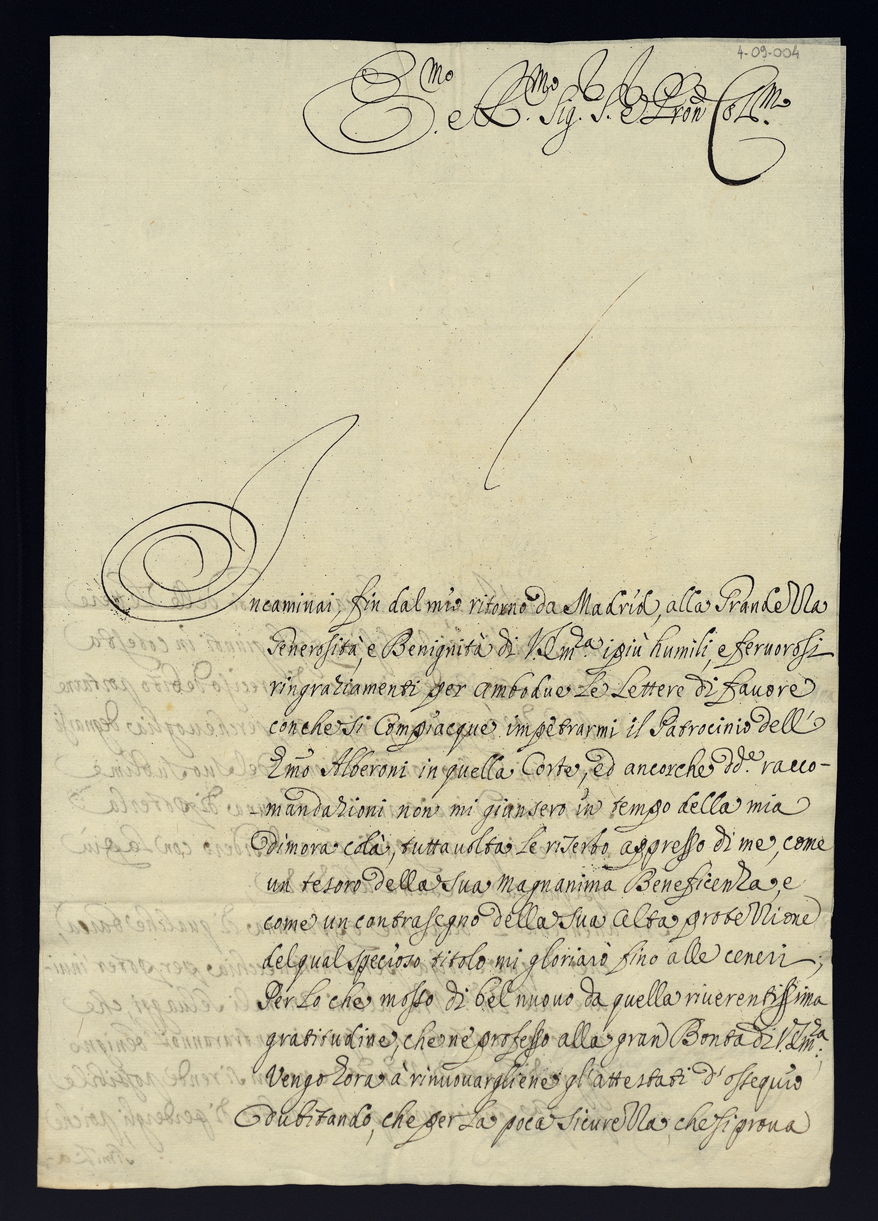 4-09-004
E.mo e R.mo Sig. S. e Pron Col.mo
Incaminai, fin dal mio ritorno da Madrid, alla Grandezza
Generosità, e Benignità di V. Em.za i più humili, e feruorosi
ringraziamenti per ambodue le Lettere di fauore
con che si Compiacque impetrarmi il Patrocinio dell'
Emo Alberoni in quella Corte, ed ancorche dd.e racco-
mandazioni non mi giunsero in tempo della mia
Dimora colà, tutta uolta le riserbo appresso di me, come
un tesoro della sua Magnanima Beneficenza, e
come un contrasegno della sua alta protezzione
del qual specioso titolo mi gloriarò fino alle ceneri;
Per lo che mosso di bel nuouo da quella riuerentissima
gratitudine, che ne professo alla gran Bontà di V. Em.za,
Vengo hora à rinuouargliene gl'attestati d'ossequio
Dubitando, che per la poca sicurezza, che si proua